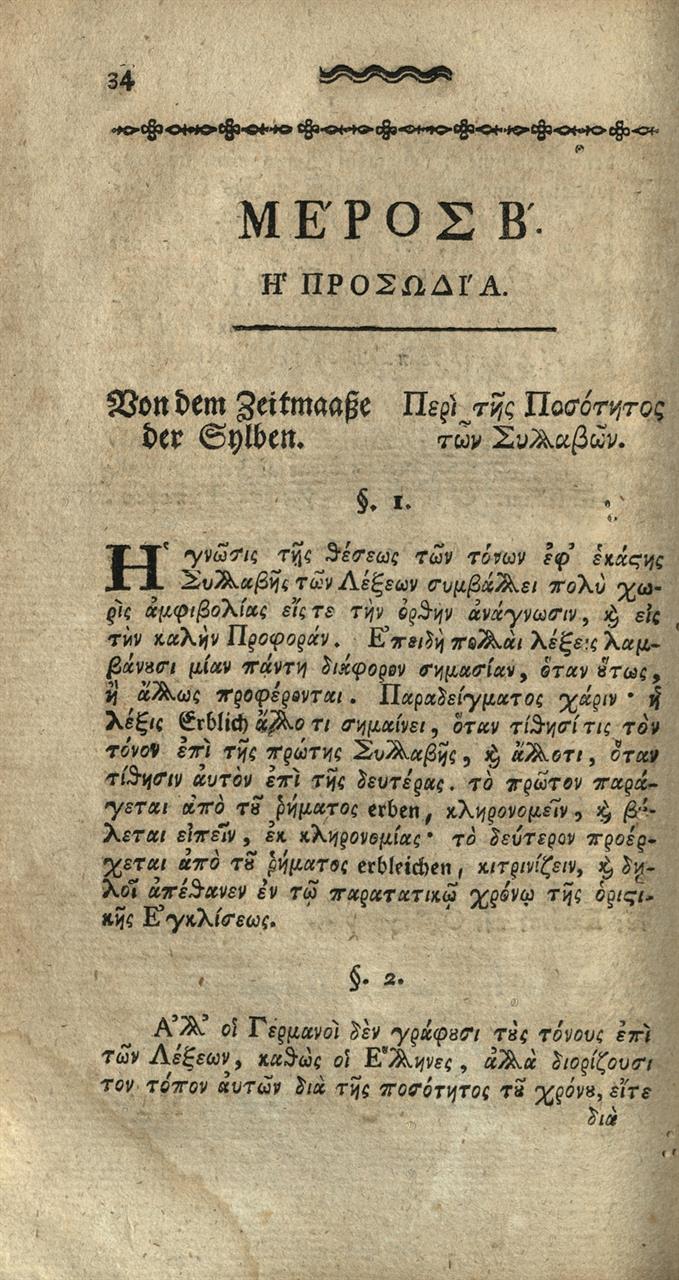 34
ΜΈΡΟΣ Β´.
Η῾ ΠΡΟΣΩΔΙ´Α.
Von dem Zeitmaaße
der Sylben.
Περὶ τῆς Ποσότητος
τῶν Συλλαβῶν.
§. 1.
Η῾ γνῶσις τῆς θέσεως τῶν τόνων ἐφ᾽ ἑκάϛης
Συλλαβῆς τῶν Λέξεων συμβάλλει πολὺ χω-
ρὶς ἀμφιβολίας εἴς τε τὴν ὀρθὴν ἀνάγνωσιν, ϗ εἰς
τὴν καλὴν Προφοράν. Ε᾽πειδὴ πολλαὶ λέξεις λαμ-
βάνȣσι μίαν πάντη διάφορον σημασίαν, ὅταν ȣ̔́τως,
ἢ ἄλλως προφέρονται. Παραδείγματος χάριν · ἡ
λέξις Erblich ἄλλο τι σημαίνει, ὅταν τίθησί τις τὸν
τόνον ἐπὶ τῆς πρώτης Συλλαβῆς, ϗ ἄλλοτι, ὅταν
τίθησιν ἀυτὸν ἐπὶ τῆς δευτέρας. τὸ πρῶτον παρά-
γεται ἀπὸ τȣ͂ ῥήματος erben, κληρονομεῖν, ϗ βȣ́-
λεται εἰπεῖν, ἐκ κληρονομίας · τὸ δεύτερον προέρ-
χεται ἀπὸ τȣ͂ ῥήματος erbleichen, κιτρινίζειν, ϗ δη-
λοῖ ἀπέθανεν ἐν τῷ παρατατικῷ χρόνῳ τῆς ὁριϛι-
κῆς Ε᾽γκλίσεως.
§. 2.
Α᾽λλ᾽ οἱ Γερμανοὶ δὲν γράφȣσι τȣ̀ς τόνους ἐπὶ
τῶν Λέξεων, καθὼς οἱ Ε῞λληνες, ἀλλὰ διορίζουσι
τον τόπον ἀυτῶν διὰ τῆς ποσότητος τȣ͂ χρόνȣ, εἴτε
διὰ